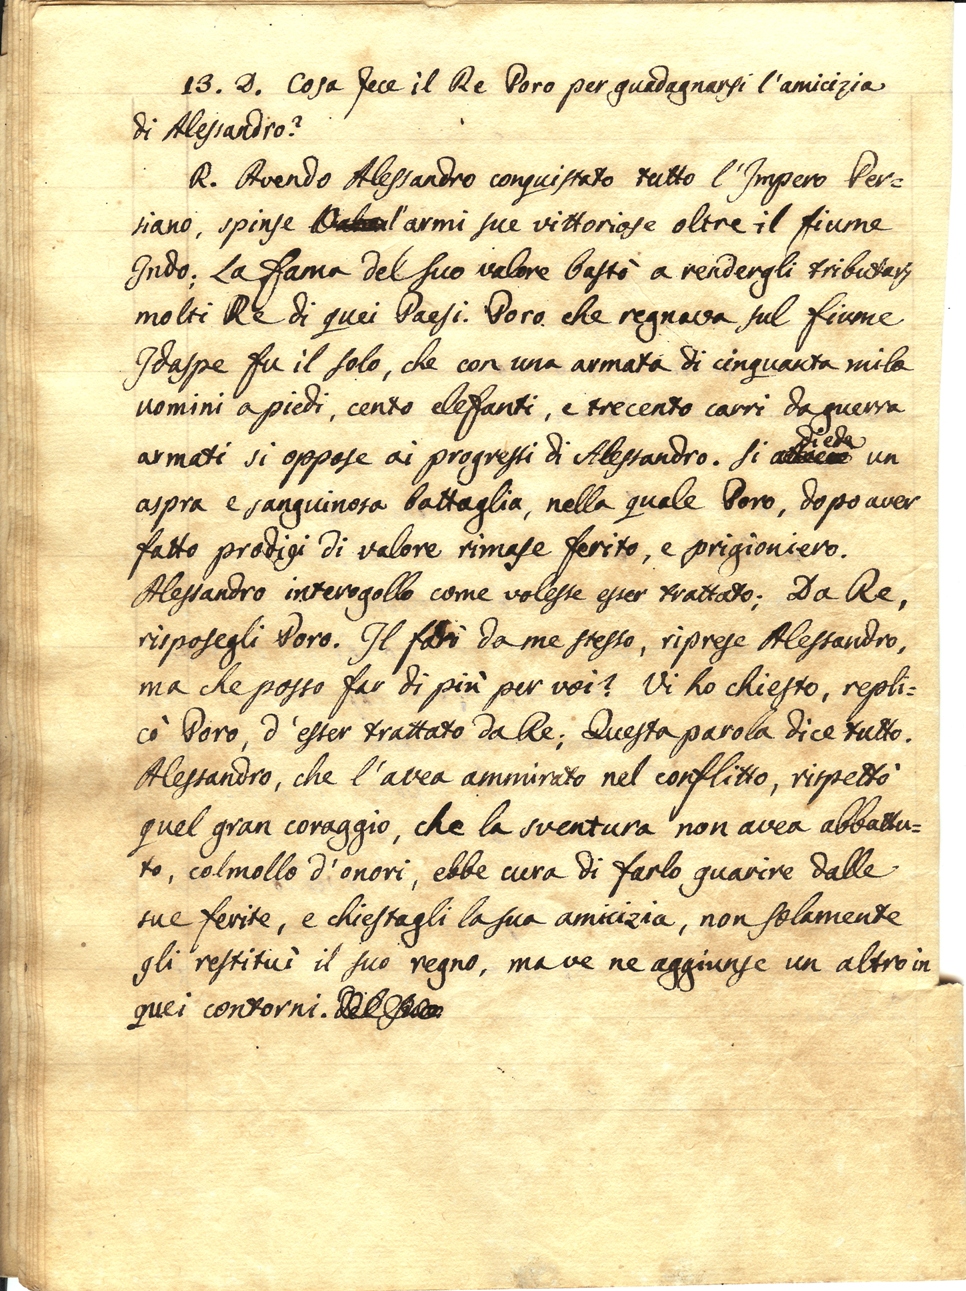 13. D. Cosa fece il Re Poro per guadagnarsi l'amicizia
di Alessandro?
R. Avendo Alessandro conquistato tutto l'Impero Per=
siano, spinse l'armi sue vittoriose oltre il fiume
Indo; La fama del suo valore bastò a rendergli tributarj
molti Re di quei Paesi. Poro che regnava sul fiume
Idaspe fu il solo, che con una armata di cinquanta mila
uomini a piedi, cento elefanti, e trecento carri da guerra
armati si oppose ai progressi di Alessandro. Si diede un
aspra e sanguinosa battaglia, nella quale Poro, dopo aver
fatto prodigi di valore rimase ferito, e prigioniero.
Alessandro interogollo come volesse esser trattato; Da Re,
risposegli Poro. Il farò da me stesso, riprese Alessandro,
ma che posso far di più per voi? Vi ho chiesto, repli=
cò Poro, d'esser trattato da Re; Questa parola dice tutto.
Alessandro, che l'avea ammirato nel conflitto, rispettò
quel gran coraggio, che la sventura non avea abbattu=
to, colmollo d'onori, ebbe cura di farlo guarire dalle
sue ferite, e chiestagli la sua amicizia, non solamente
gli restituì il suo regno, ma ve ne aggiunse un altro in
quei contorni.